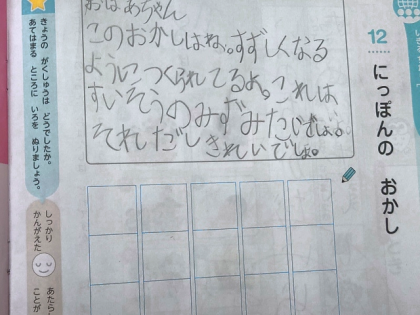 おばあちゃん
このおかしはね。すずしくなる
ようにつくられてるよ。これは
すいそうのみずみたいでしょ。
それだしきれいでしょ。
12
にっぽんの おかし
きょうの がくしゅうは どうでしたか。
あてはまる ところに いろを ぬりましょう。
しっかり
かんがえた
あたらし
ことが